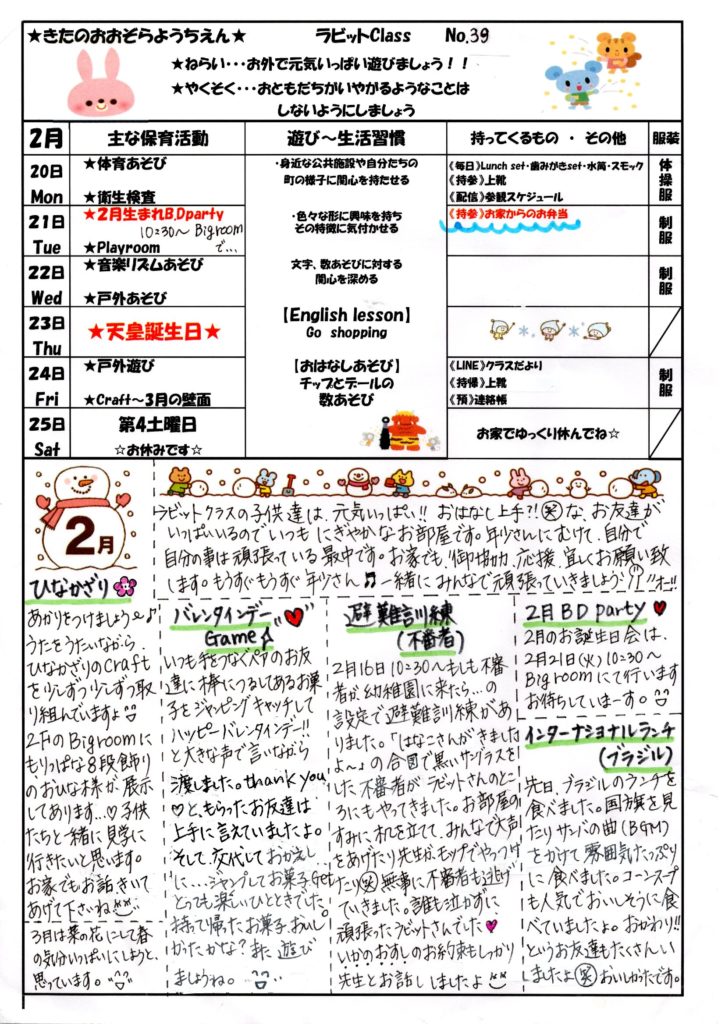 ★きたのおおぞらようちえん★ ラビットClass No.39
★ねらい・・・お外で元気いっぱい遊びましょう!!
★やくそく・・・おともだちがいやがるようなことは
しないようにしましょう
2月 主な保育活動 遊び～生活習慣 持ってくるもの ・ その他 服装
20日 Mon
★体育あそび
★衛生検査
・身近な公共施設や自分たちの
町の様子に関心を持たせる
《毎日》Lunch set・歯みがきset・水筒・スモック
《持参》上靴
《配信》参観スケジュール
体操服
21日 Tue
★2月生まれB,Dparty
10:30～ Bigroom
で...
★Playroom
・色々な形に興味を持ち
その特徴に気付かせる
《持参》お家からのお弁当
制服
22日 Wed
★音楽リズムあそび
★戸外あそび
文字、数あそびに対する
関心を深める
制服
23日 Thu
★天皇誕生日★
【English lesson】
Go shopping
24日 Fri
★戸外遊び
★Craft～3月の壁面
【おはなしあそび】
チップとデールの
数あそび
《LINE》クラスだより
《持帰》上靴
《預》連絡帳
制服
25日 Sat
第4土曜日
☆お休みです☆
お家でゆっくり休んでね☆
2月
ラビットクラスの子供達は、元気いっぱい!! おはなし上手?!(笑)な、お友達が
いっぱいいるのでいつもにぎやかなお部屋です。年少さんにむけて、自分で
自分の事は頑張っている最中です。お家でも、御協力、応援、宜しくお願い致
します。もうすぐもうすぐ年少さん♫一緒にみんなで頑張っていきましょう "オー!!
ひなかざり
あかりをつけましょう～♪
うたをうたいながら、
ひなかざりのCraft
を少しずつ少しずつ取
り組んでいますょ
2FのBigroomに
もりっぱな8段飾り
のおひな様が展示
してあります...♡子供
たちと一緒に見学に
行きたいと思います。
お家でもお話、きいて
あげて下さいね
3月は菜の花にして春
の気分いっぱいにしようと、
思っています。
バレンタインデー
Game
いつも手をつなぐペアのお友
達に棒につるしてあるお菓
子をジャンピングキャッチして
ハッピーバレンタインデー!!
と大きな声で言いながら
渡しました。thank you
♡と、もらったお友達は
上手に言えていましたよ。
そして、交代しておかえし
に...ジャンプしてお菓子Get
とっても楽しいひとときでした。
持って帰ったお菓子、おいし
かったかな? また、遊び
ましょうね。
避難訓練
(不審者)
2月16日 10:30～もしも不審
者が幼稚園に来たら...の
設定で避難訓練があ
りました。「はなこさんがきました
よ～」の合図で黒いサングラスを
した不審者がラビットさんのとこ
ろにもやってきました。お部屋の
すみに机を立てて、みんなで大声
をあげたり先生が、モップでやっつけ
たり(笑)無事に不審者も逃げ
ていきました。誰も泣かずに
頑張ったラビットさんでした♥
いかのおすしのお約束もしっかり
先生とお話ししましたよ
2月 BD party ♥
2月のお誕生日会は、
2月21日(火)10:30～
Bigroomにて行います
お待ちしていまーす。
インターナショナルランチ
(ブラジル)
先日、ブラジルのランチを
食べました。国旗を見
たりサンバの曲(BGM)
をかけて雰囲気たっぷり
に食べました。コーンスープ
も人気でおいしそうに食
べていましたよ。おかわり!!
というお友達もたくさんい
ましたよ(笑)おいしかったです。